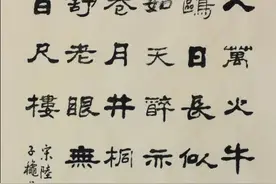 人萬火牛
鷗日長似
如天醉亦
卷月井桐
舒老眼無
百尺樓
宋陸
子